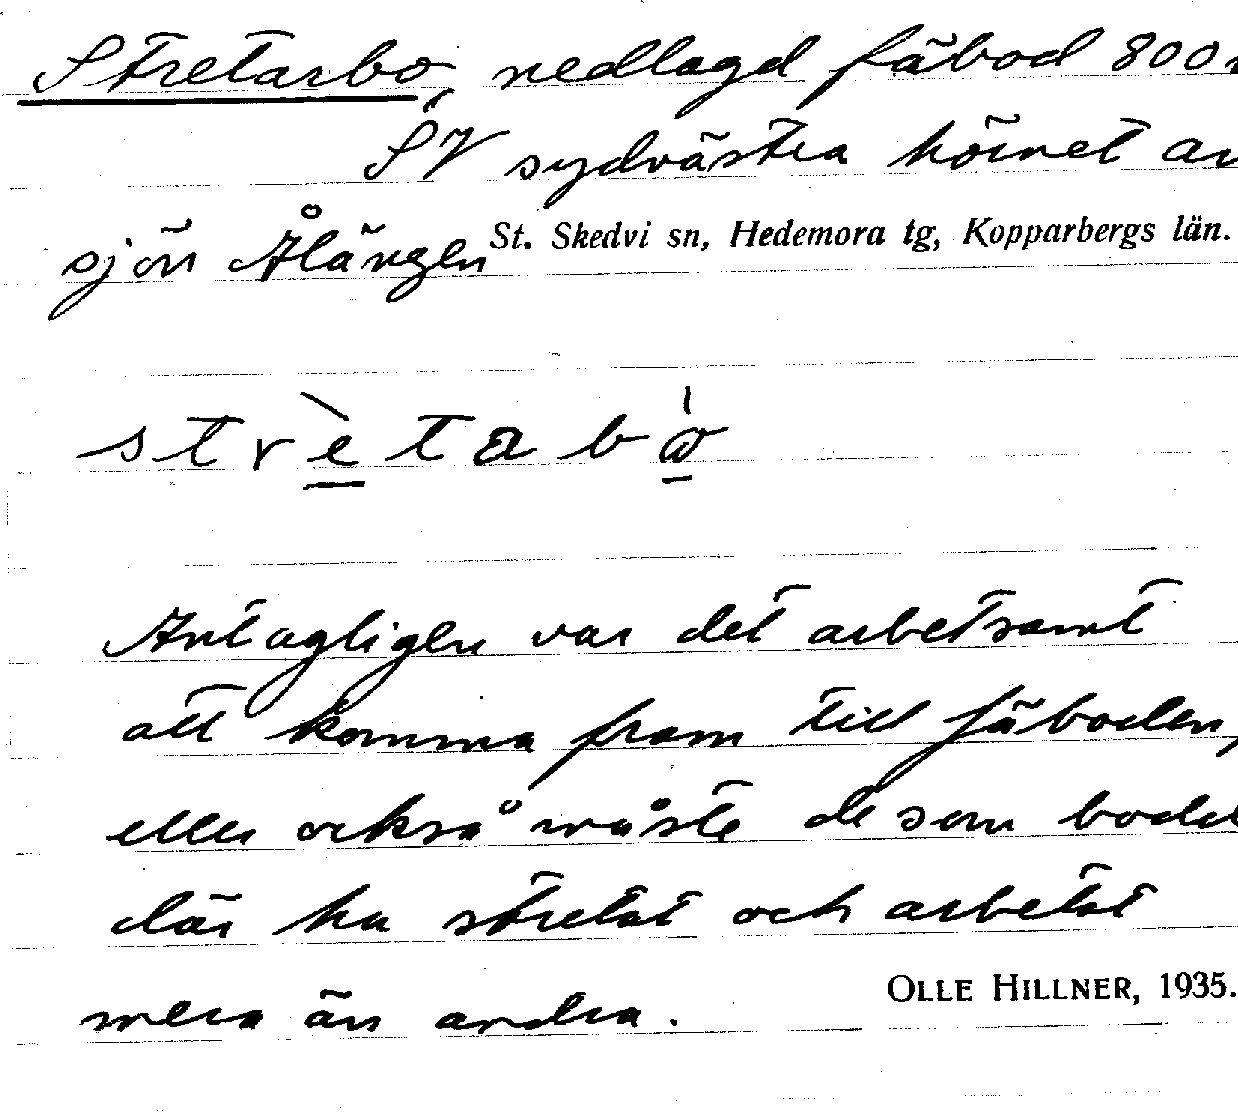 Stretarbo, nedlagd fäbod 800
SV sydvästra hörnet av
sjön Ålängen St. Skedvi sn, Hedemora tg, Kopparbergs län.
strètabò
Antagligen var det arbetsamt
att komma fram till fäboden,
eller också måste de som bodde
där ha stretat och arbetat
mera än andra. OLLE HILLNER, 1935.